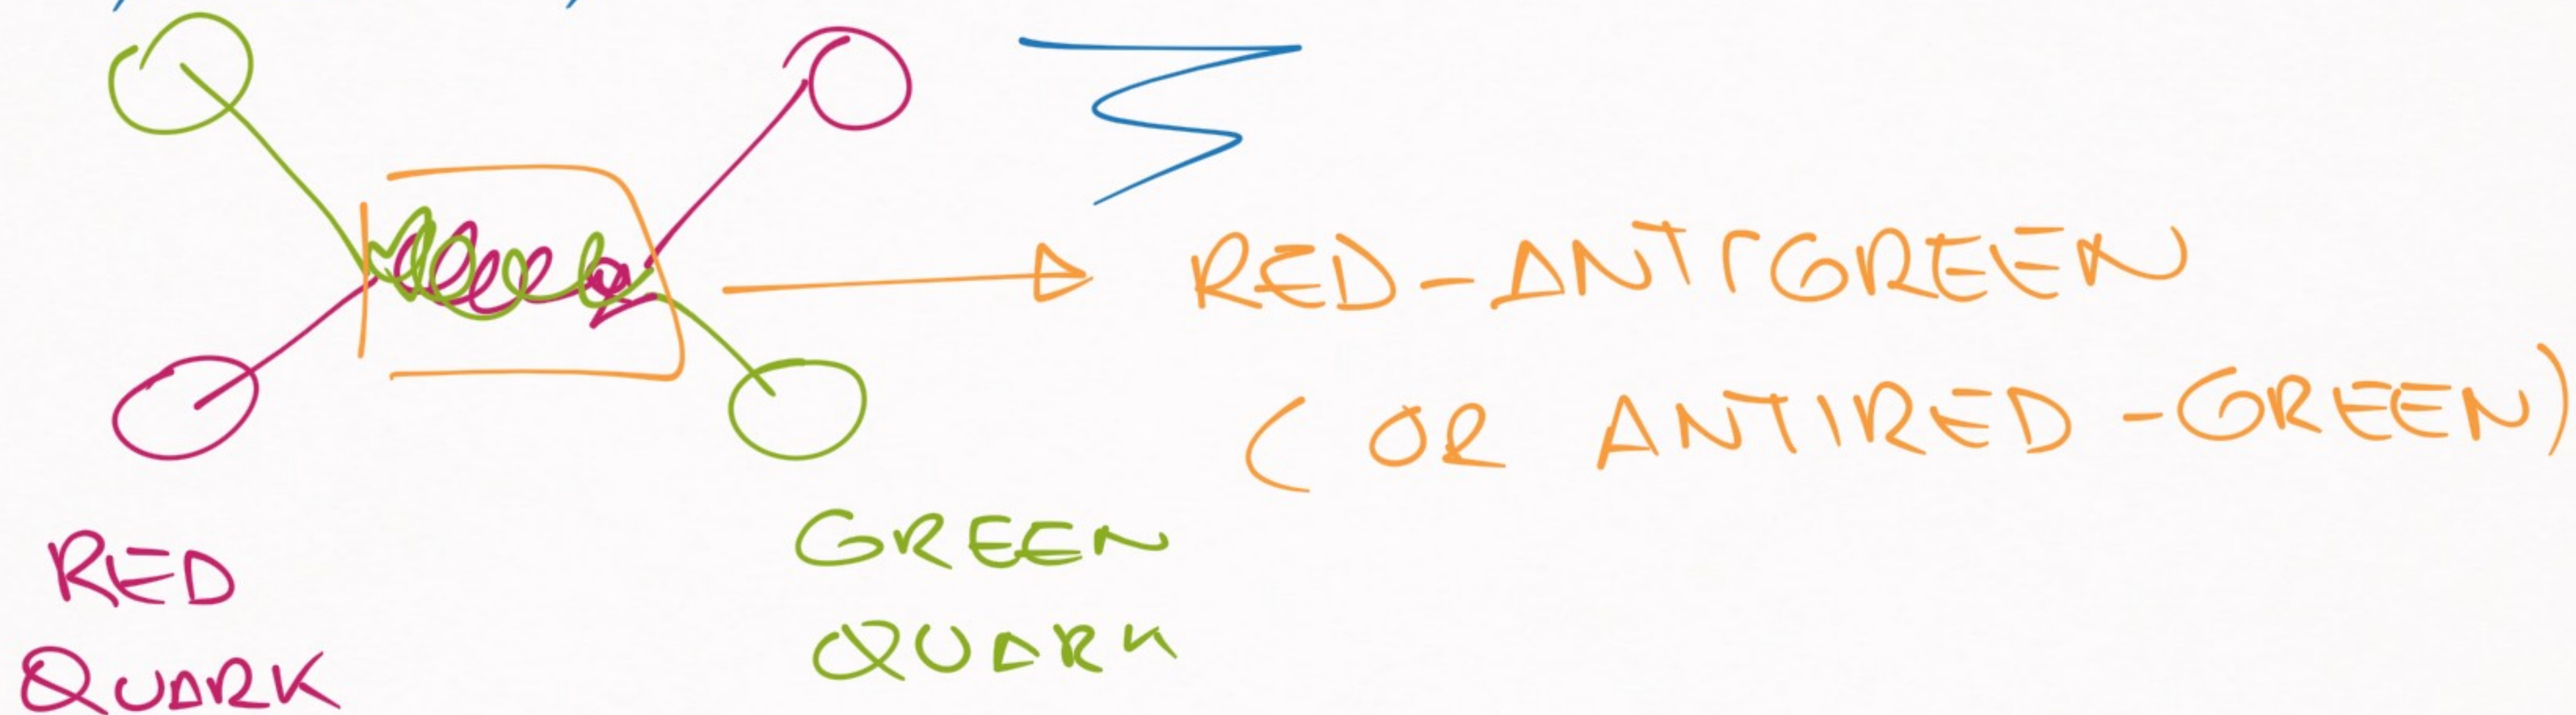 RED-ANTIGREEN
(OR ANTIRED-GREEN)
GREEN
QUARK
RED
QUARK